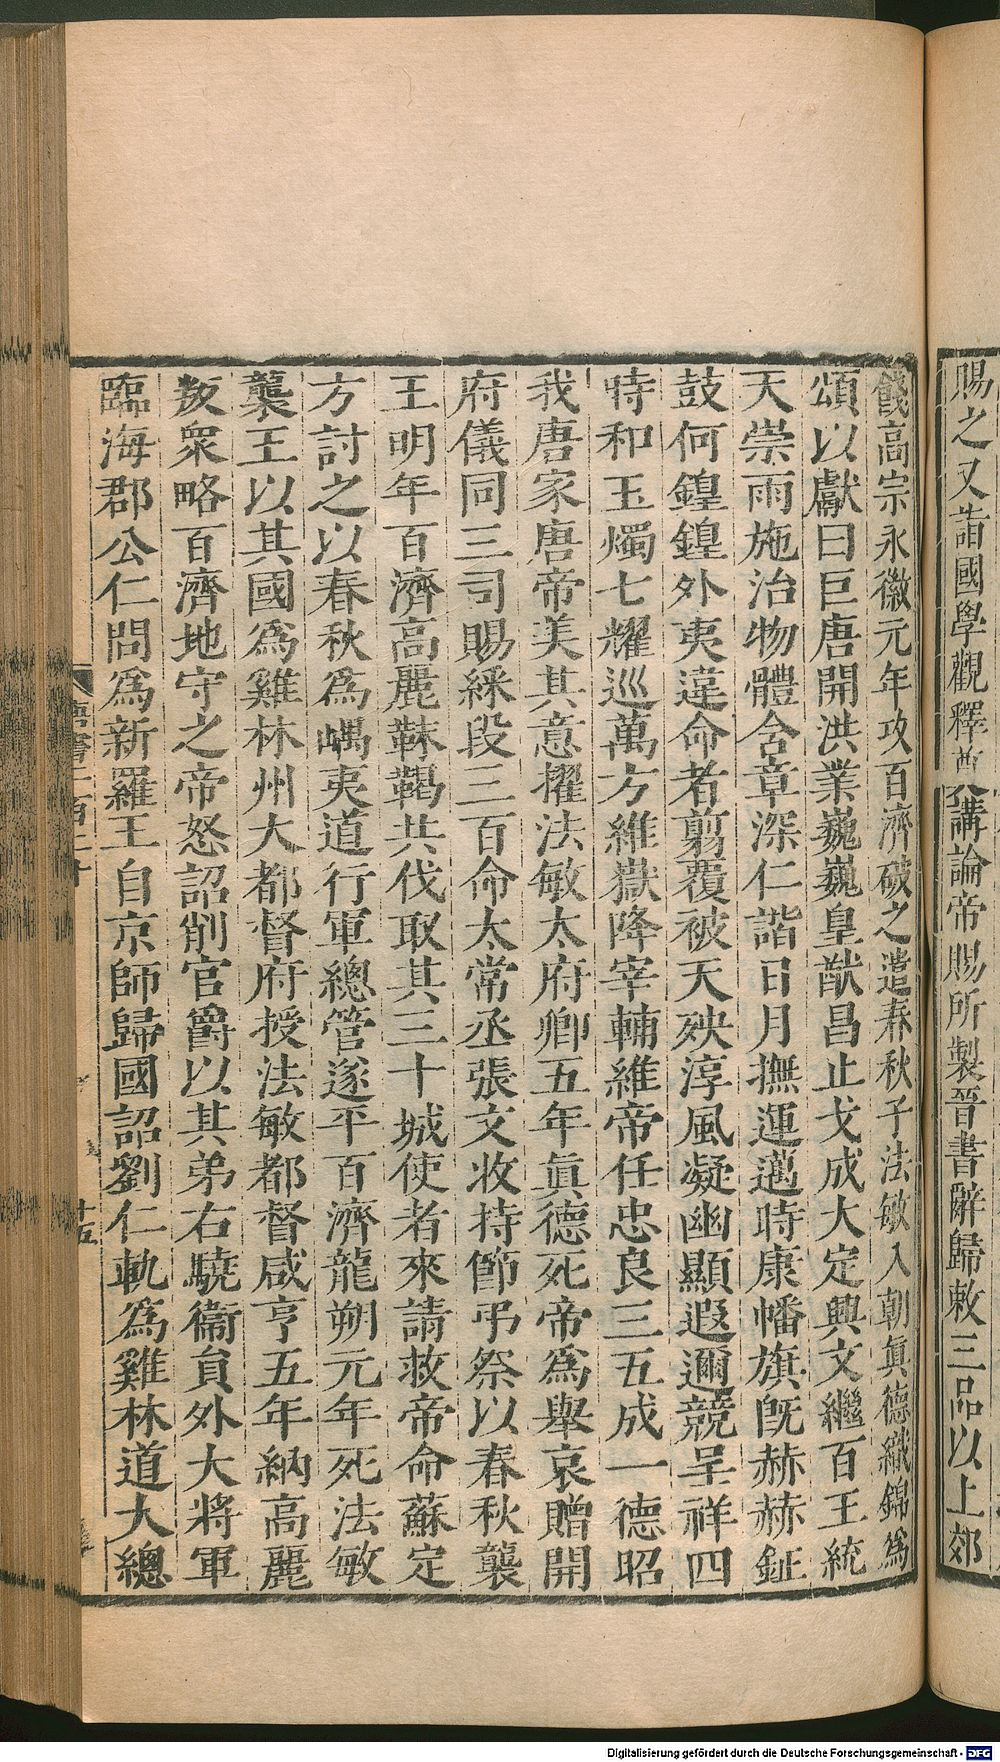 賜之又詣國學觀釋奠講論帝賜所製晉書辭歸敕三品以上郊
餞高宗永徽元年攻百濟破之遣春秋子法敏入朝眞德織錦爲
頌以獻曰巨唐開洪業巍巍皇猷昌止戈成大定興文繼百王統
天崇雨施治物體含章深仁諧日月撫運邁時康幡旗旣赫赫鉦
鼓何鍠鍠外夷違命者翦覆被天殃淳風凝幽顯遐邇競呈祥四
時和玉燭七耀巡萬方維嶽降宰輔維帝任忠良三五成一德昭
我唐家唐帝美其意擢法敏太府卿五年眞德死帝爲舉哀贈開
府儀同三司賜綵段三百命太常丞張文收持節弔祭以春秋襲
王明年百濟高麗靺鞨共伐取其三十城使者來請救帝命蘇定
方討之以春秋爲嵎夷道行軍總管遂平百濟龍朔元年死法敏
襲王以其國爲雞林州大都督府授法敏都督咸亨五年納高麗
叛眾略百濟地守之帝怒詔削官爵以其弟右驍衞員外大將軍
臨海郡公仁問爲新羅王自京師歸國詔劉仁軌爲雞林道大總
唐書二百二十
十五
Digitalisierung gefördert durch die Deutsche Forschungsgemeinschaft - DFG